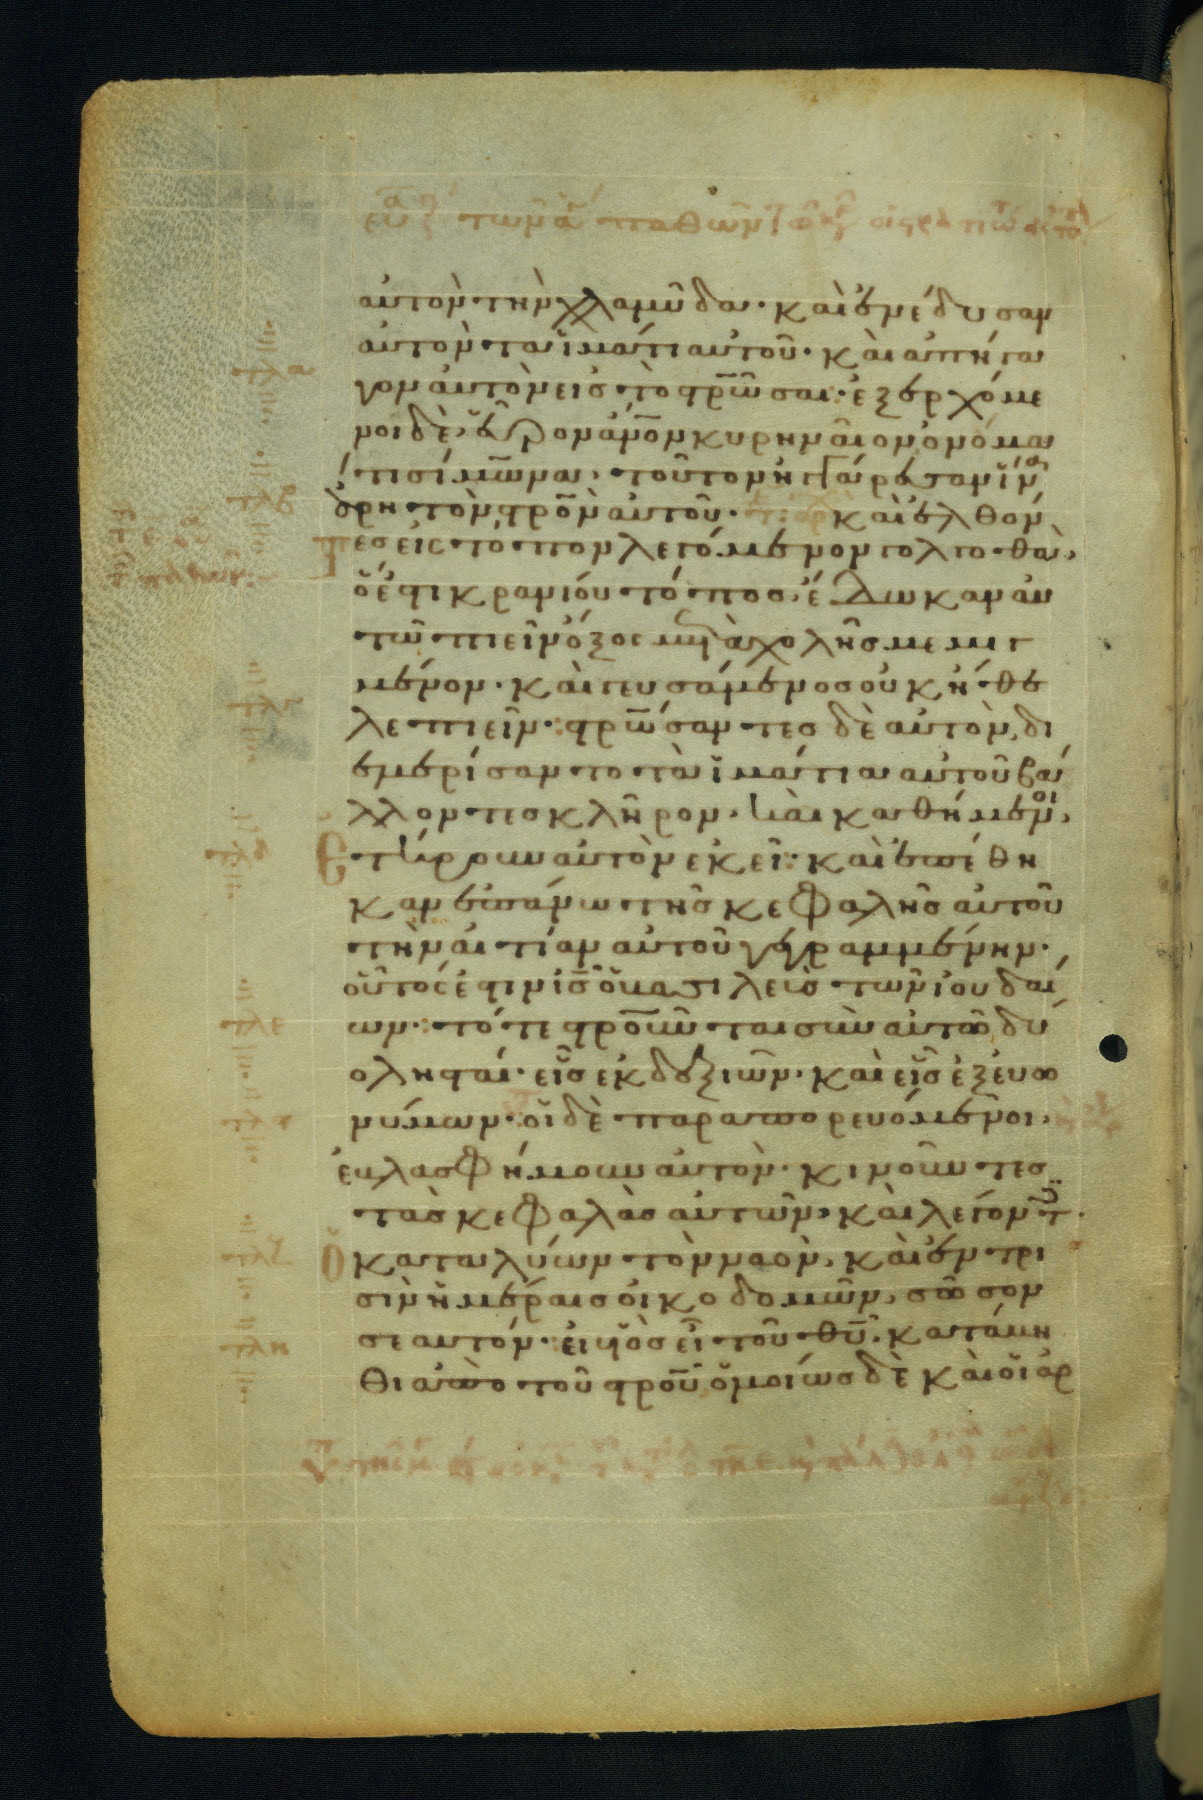 αὐτὸν τὴν χλαμύδα· καὶ ἐνέδυσαν
αὐτὸν τὰ ἱμάτια αὐτοῦ· καὶ ἀπήγα
γον αὐτὸν εἰς τὸ στ̅ρ̅ῶσαι· ἐξερχόμε
νοι δὲ, εὗρον ἄν̅ο̅ν κυρηναῖον ὀνόμα
τι σίμωνα· τοῦτον ἠγγάρευσαν ἵν
ἄρῃ τὸν στ̅ρ̅ο̅ν αὐτοῦ· καὶ ἐλθόν
τες εἰς τόπον λεγόμενον γολγοθᾶ,
ὅ ἐστι κρανίου τόπος, ἔδωκαν αὐ
τῶ πιεῖν ὄξος μετὰ χολῆς μεμιγ
μένον· καὶ γευσάμενος οὐκ ἤθε
λε πιεῖν· στ̅ρ̅ώσαντες δὲ αὐτὸν, δι
εμερίσαντο τὰ ἱμάτια αὐτοῦ βά
λλοντες κλῆρον· καὶ καθήμενοι,
ἐτήρουν αὐτὸν ἐκεῖ· καὶ ἐπέθη
καν ἐπάνω τῆς κεφαλῆς αὐτοῦ
τὴν αἰτίαν αὐτοῦ γεγραμμένην·
οὗτός ἐστιν ἰ̅ς̅ ὁ βασιλεὺς τῶν ἰουδαί
ων· τότε στ̅ρ̅οῦνται σὺν αὐτῶ δύ
ο λησταί· εἷς ἐκ δεξιῶν· καὶ εἷς ἐξ εὐω
νύμων· οἱ δὲ παραπορευόμενοι,
ἐβλασφήμουν αὐτὸν· κινοῦντες
τὰς κεφαλὰς αὐτῶν, καὶ λέγοντ·
Ὁ καταλύων τὸν ναὸν, καὶ ἐν τρι
σὶν ἡμέραις οἰκοδομῶν, σῶσον
σεαυτόν· εἰ υἱὸς εἶ τοῦ θ̅υ̅· κατάβη
θι ἀπὸ τοῦ στ̅ρ̅ο̅υ̅, ὁμοίως δὲ καὶ οἱ ἀρ
τλα
τλβ
τλγ
τλδ
τλε
τλϛ
τλζ
τλη